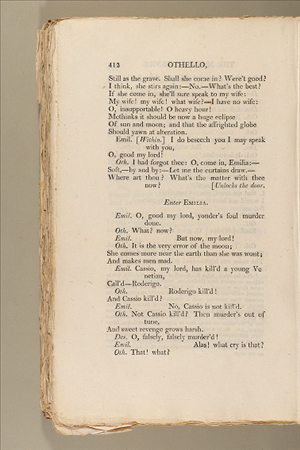 412 OTHELLO,
Still as the grave. Shall she come in? Were't good?
I think, she stirs again:—No.—What's the best?
If she come in, she'll sure speak to my wife:
My wife! my wife! what wife?—I have no wife:
O, insupportable! O heavy hour!
Methinks it should be now a huge eclipse
Of sun and moon; and that the affrighted globe
Should yawn at alteration.
Emil. [Within.] I do beseech you I may speak
with you,
O, good my lord!
Oth. I had forgot thee: O, come in, Emilia:—
Soft,—by and by:—Let me the curtains draw.—
Where art thou? What's the matter with thee
now? [Unlocks the door.
Enter EMILIA.
Emil. O, good my lord, yonder's foul murder
done.
Oth. What? now?
Emil. But now, my lord!
Oth. It is the very error of the moon;
She comes more near the earth than she was wont;
And makes men mad.
Emil. Cassio, my lord, has kill'd a young Ve
netian,
Call'd—Roderigo.
Oth. Roderigo kill'd!
And Cassio kill'd?
Emil. No, Cassio is not kill'd.
Oth. Not Cassio kill'd? Then murder's out of
tune,
And sweet revenge grows harsh.
Des. O, falsely, falsely murder'd!
Emil. Alas! what cry is that?
Oth. That! what?